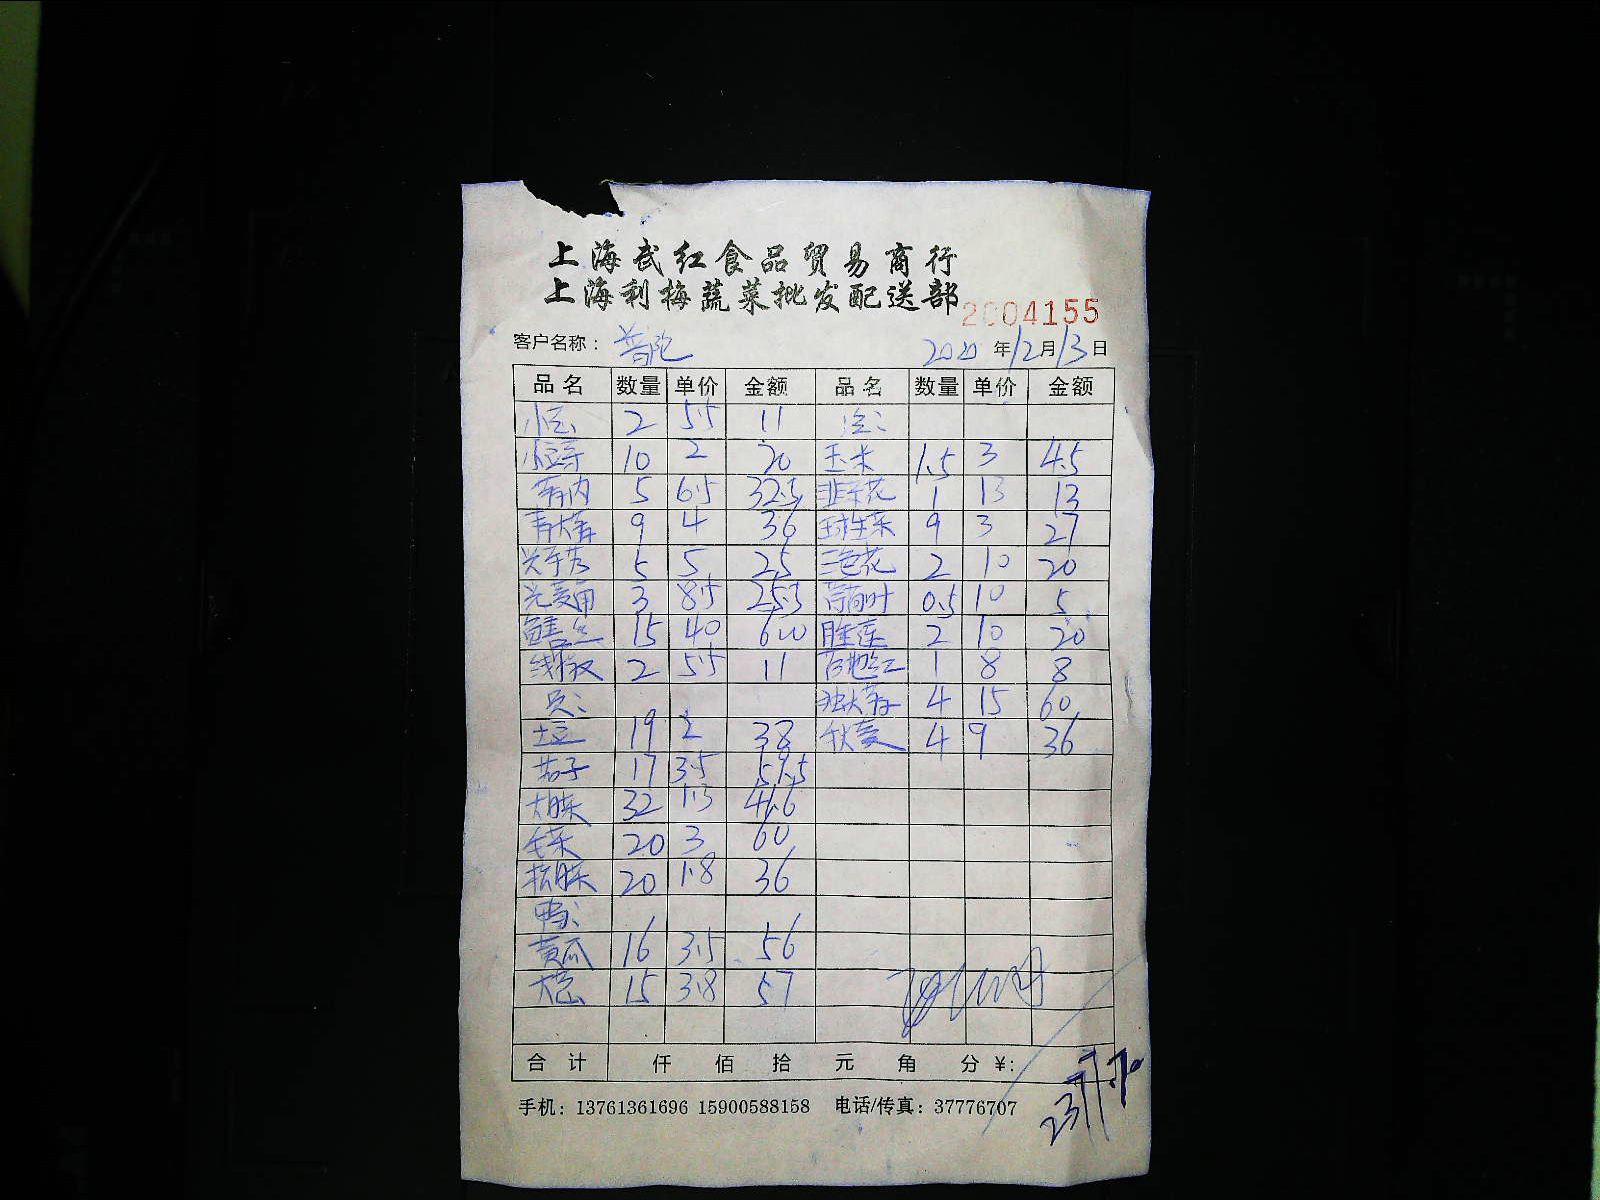 上海武红食品贸易商行
上海利梅蔬菜批发配送部
2004155
客户名称：普陀 2020年12月13日
品名 数量 单价 金额 品名 数量 单价 金额
小葱 2 5.5 11
10 2 20 玉米 1.5 3 4.5
5 6.5 32.5 韭菜花 1 13 13
9 4 36 球生菜 9 3 27
5 5 25 三色花 2 10 20
3 8.5 25.5 薄荷叶 0.5 10 5
15 40 600 2 10 20
线椒 2 5.5 11 1 8 8
独大蒜 4 15 60
土豆 19 2 38 4 9 36
茄子 17 3.5 59.5
32 1.3 41.6
20 3 60
20 1.8 36
鸭：
黄瓜 16 3.5 56
大葱 15 3.8 57
合计 仟 佰 拾 元 角 分 ¥：
手机：13761361696 15900588158 电话/传真：37776707